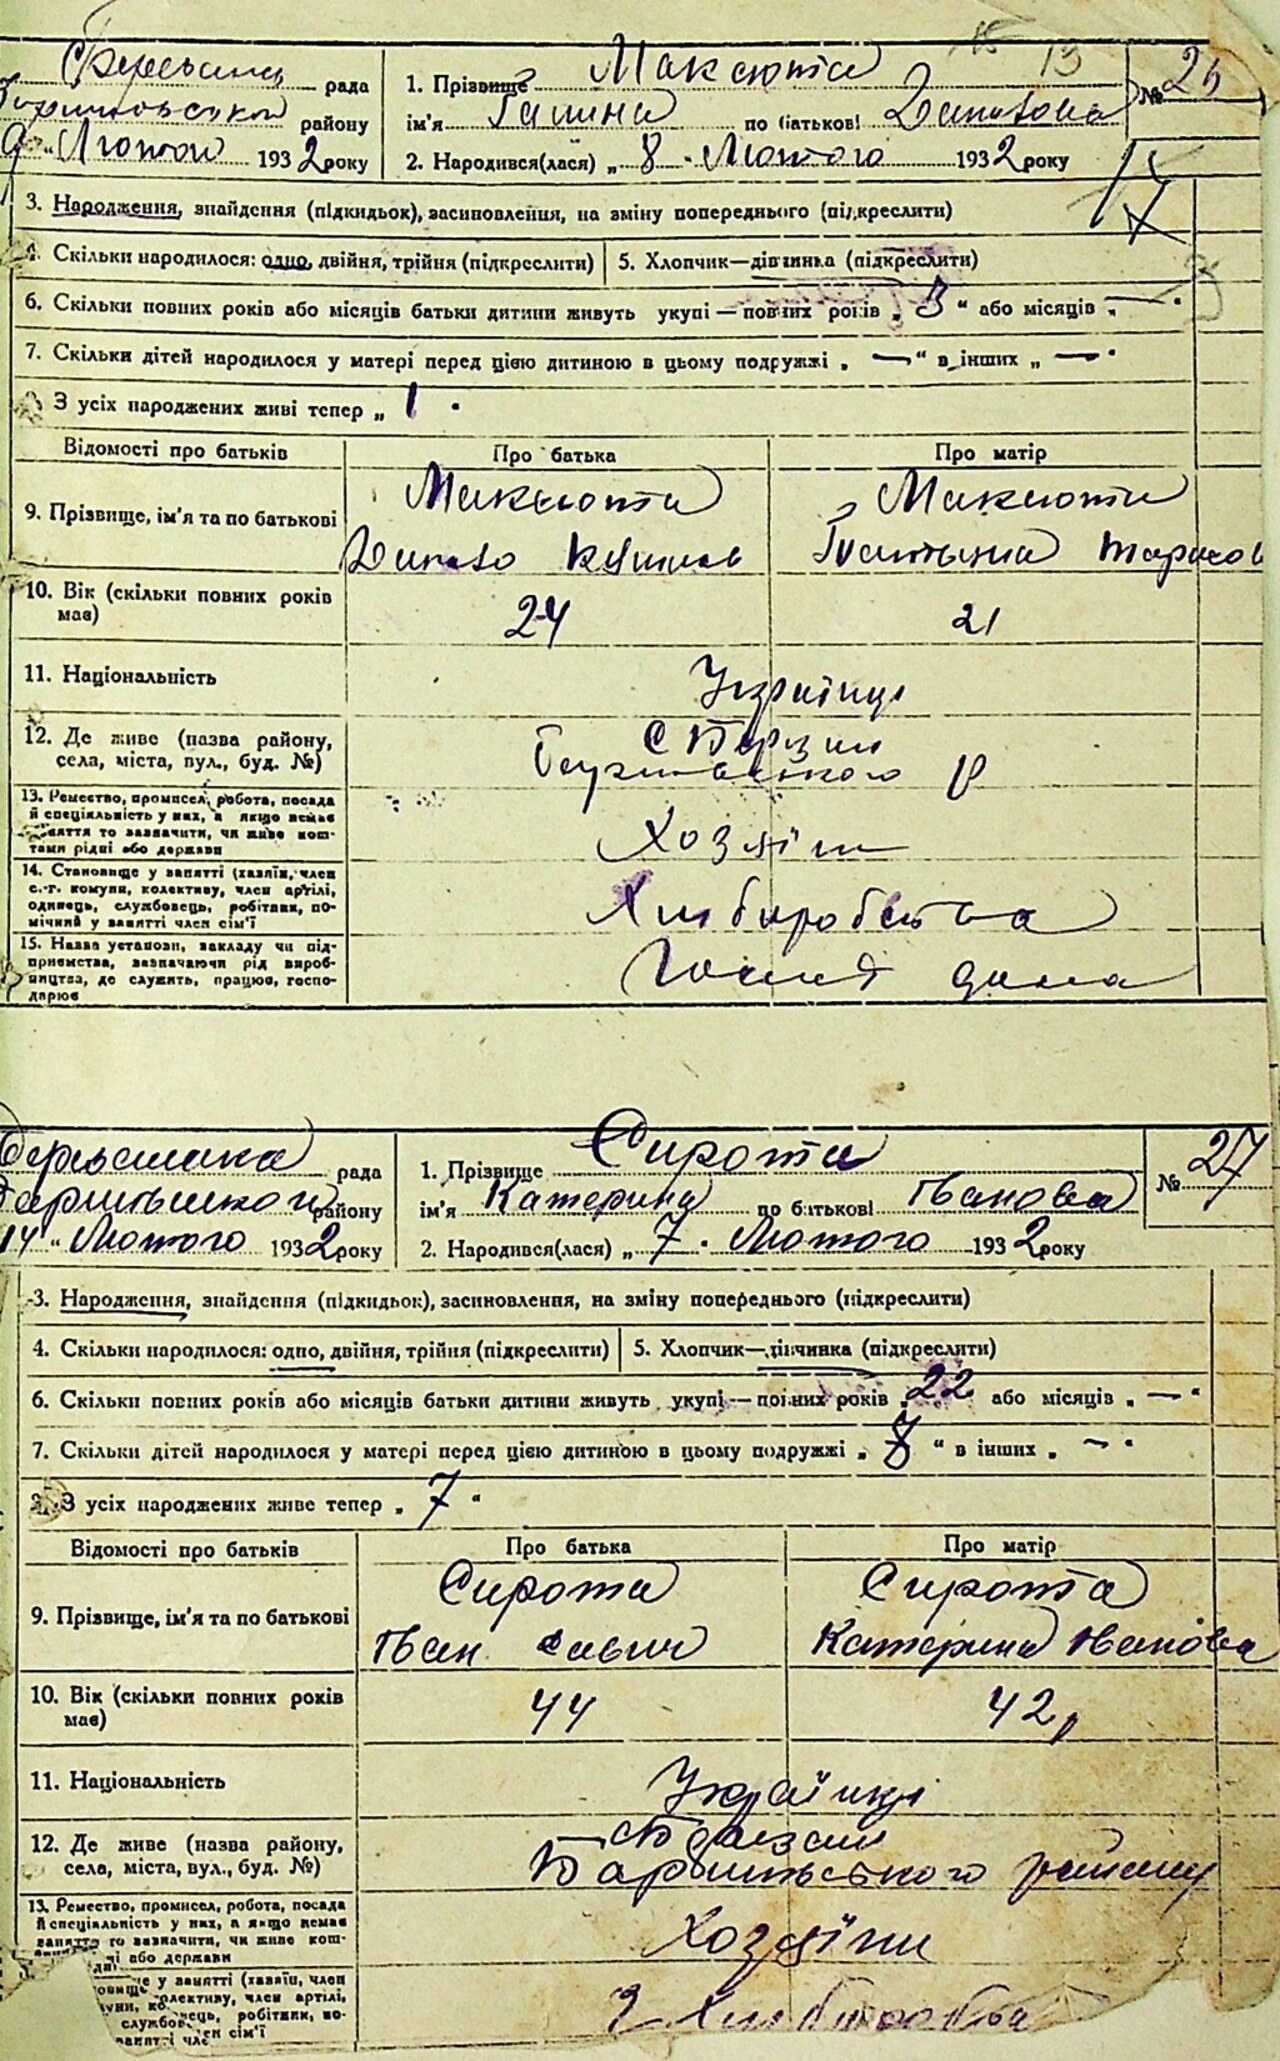 рада
району
9 " Лютого 1932 року
1. Прізвище Максюта
ім'я Галина по батькові Данилова
2. Народився(лася) „ 8 " Лютого 1932 року
№ 26
3. Народження, знайдення (підкидьок), засиновлення, на зміну попереднього (підкреслити)
4. Скільки народилося: одно, двійня, трійня (підкреслити)
5. Хлопчик—дівчинка (підкреслити)
6. Скільки повних років або місяців батьки дитини живуть укупі — повних років „ 3 " або місяців „ — "
7. Скільки дітей народилося у матері перед цією дитиною в цьому подружжі „ — " в інших „ — "
З усіх народжених живі тепер „ 1 "
Відомості про батьків
Про батька
Про матір
9. Прізвище, ім'я та по батькові
Максюта
Максюта
10. Вік (скільки повних років має)
24
21
11. Національність
Українці
12. Де живе (назва району, села, міста, вул., буд. №)
13. Ремество, промисел, робота, посада
й спеціяльність у них, а якщо немає
заняття то зазначити, чи живе кош-
тами рідні або держави
Хозяїн
14. Становище у занятті (хазяїн, член
с.-г. комуни, колективу, член артілі,
одинець, службовець, робітник, по-
мічний у занятті член сім'ї
15. Назва установи, закладу чи під-
приємства, зазначаючи рід вироб-
ництва, де служить, працює, госпо-
дарює
рада
району
14 " Лютого 1932 року
1. Прізвище Сирота
ім'я Катерина по батькові Іванова
2. Народився(лася) „ 7 " Лютого 1932 року
№ 27
3. Народження, знайдення (підкидьок), засиновлення, на зміну попереднього (підкреслити)
4. Скільки народилося: одно, двійня, трійня (підкреслити)
5. Хлопчик—дівчинка (підкреслити)
6. Скільки повних років або місяців батьки дитини живуть укупі — повних років „ 22 або місяців „ — "
7. Скільки дітей народилося у матері перед цією дитиною в цьому подружжі „ 8 " в інших „ — "
З усіх народжених живе тепер „ 7 "
Відомості про батьків
Про батька
Про матір
9. Прізвище, ім'я та по батькові
Сирота
Іван Савич
Сирота
Катерина Іванова
10. Вік (скільки повних років має)
44
42 р
11. Національність
Українці
12. Де живе (назва району, села, міста, вул., буд. №)
району
13. Ремество, промисел, робота, посада
й спеціяльність у них, а якщо немає
заняття то зазначити, чи живе кош-
або держави
Хозяїни
у занятті (хазяїн, член
колективу, член артілі,
робітник, по-
член сім'ї